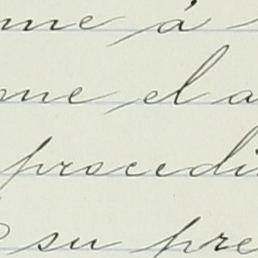 me à
me el a
procedi
su pre